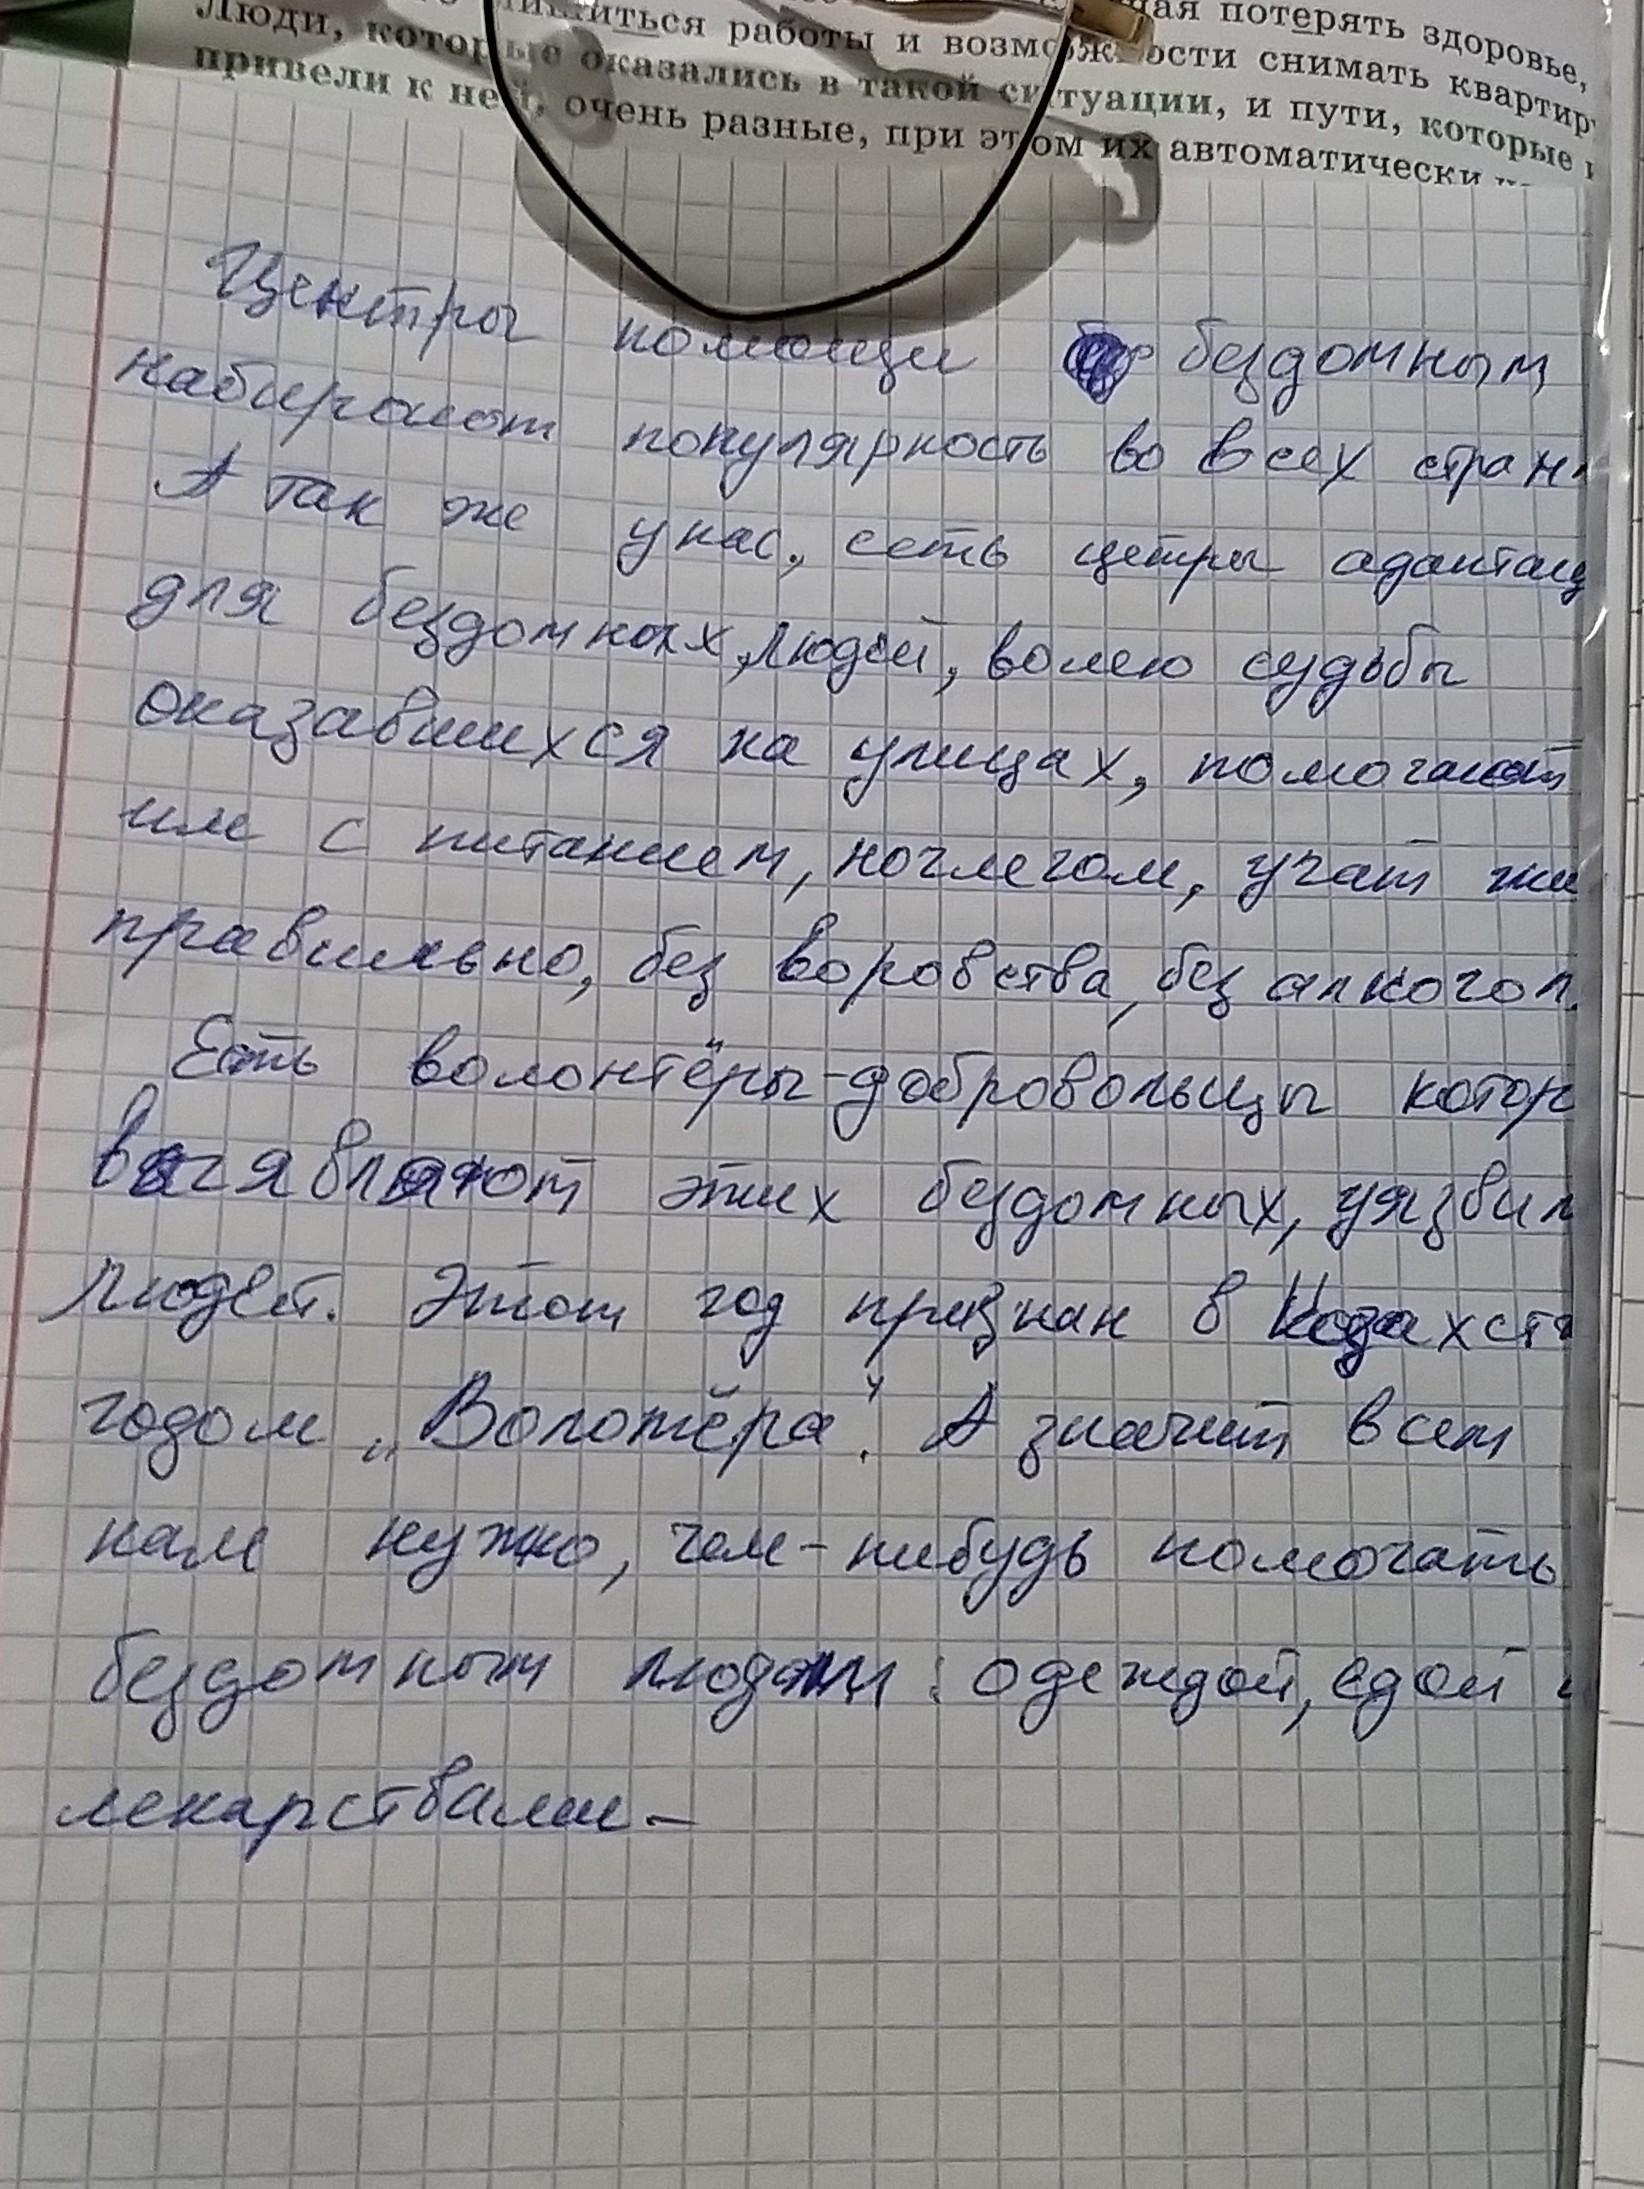 потерять здоровье,
работы и возможности снимать квартир
Люди, которые оказались в такой ситуации, и пути, которые
привели к ней, очень разные, при этом их автоматически
Центры помощи бездомным
набирают популярность во всех стран
А так же у нас, сеть цетры адаптац
для бездомных, людей, волею судьбы
оказавшихся на улицах, помогают
им с питанием, ночлегом, учат жи
правильно, без воровства, без алкогол
Есть волонтёры-добровольцы котор
выявляют этих бездомных, уязвим
людей. Этот год признан в Казахст
годом „Волотёра". А значит всем
нам нужно, чем-нибудь помогать
бездомным людям: одеждой, едой и
лекарствами-